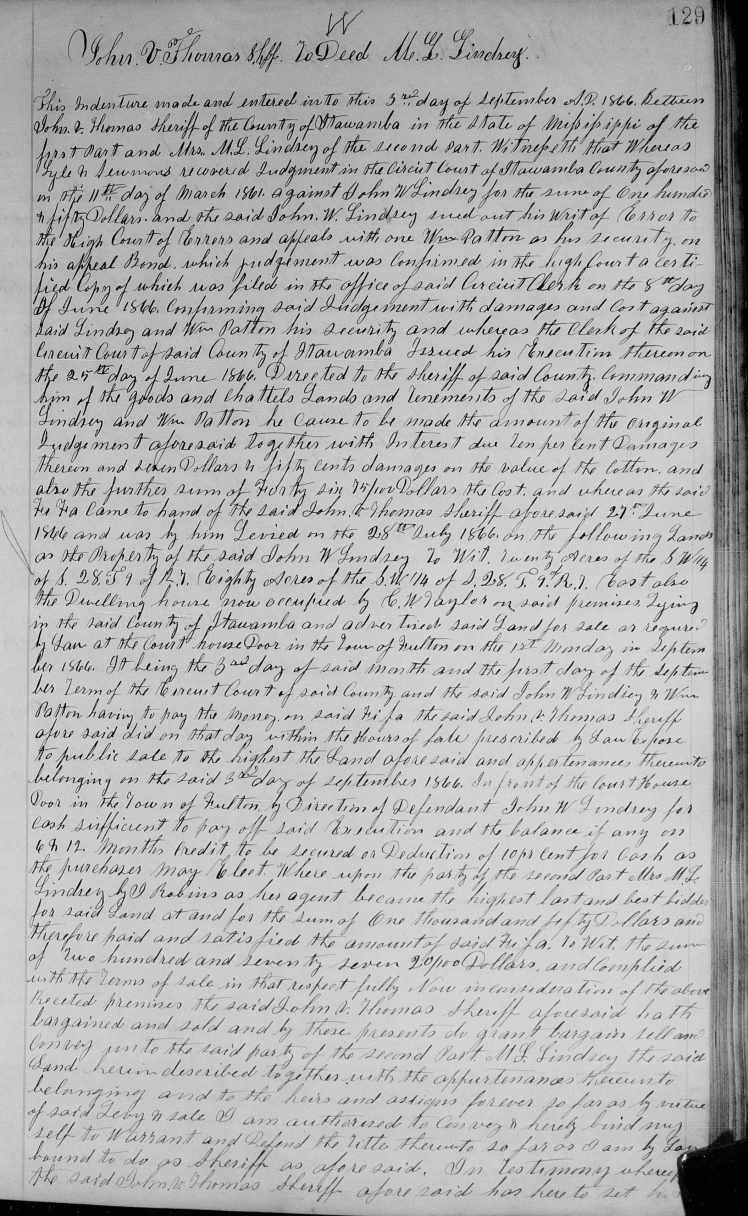 W
129
John. V. Thomas Shff. To Deed M. L. Lindsey.
This Indenture made and entered into this 3rd day of September A.D. 1866. Between
John. V. Thomas Sheriff of the County of Itawamba in the State of Mississippi of the
first Part and Mrs. M. L. Lindsey of the second part. Witnesseth that Whereas
Lyle & recovered Judgment in the Circuit Court of Itawamba County aforesaid
on the 11th day of March 1861. against John W Lindsey for the sum of One hundred
& fifty Dollars. and the said John. W. Lindsey sued out his Writ of Error to
the High Court of Errors and appeals with one Wm Patton as his security, on
his appeal Bond. which judgement was Confirmed in the high Court a Certi-
fied Copy of which was filed in the office of said Circuit Clerk on the 8th day
Of June 1866. Confirming said Judgement with damages and Cost against
said Lindsey and Wm Patton his security and whereas the Clerk of the said
Circuit Court of said County of Itawamba Issued his Execution thereon on
the 25th day of June 1866. Directed to the Sheriff of said County. Commanding
him of the goods and Chattels Lands and tenements of the said John W
Lindsey and Wm Patton he Cause to be made the amount of the original
Judgement aforesaid together with Interest due Ten per Cent Damages
thereon and seven Dollars & fifty cents damages on the value of the Cotton. and
also the further sum of Forty six 75/100 Dollars the Cost. and whereas the said
Fi Fa Came to hand of the said John. V. Thomas Sheriff aforesaid 27th June
1866 and was by him Levied on the 28th July 1866. on the following Lands
as the Property of the said John W Lindsey To Wit. Twenty Acres of the S W 1/4
of S. 28. T 9 of R. 7. Eighty Acres of the S. W 1/4 of S. 28. T. 9. R. 7. East also
the Dwelling house now occupied by C. W Taylor on said premises. Lying
in the said County of Itawamba and advertised said Land for sale as required
by Law at the Court house Door in the Town of Fulton on the 1st Monday in Septem
ber 1866. It being the 3rd day of said month and the first day of the Septem
ber Term of the Circuit Court of said County and the said John W Lindsey & Wm
Patton having to pay the Money on said Fi fa the said John. V. Thomas Sheriff
afore said did on that day within the Hours of sale prescribed by Law Expose
to public sale to the highest the Land afore said and appertenances thereunto
belonging on the said 3rd day of September 1866. In front of the Court House
Door in the Town of Fulton by Direction of Defendant John W Lindsey for
Cash sufficient to pay off said Execution and the balance if any on
6 & 12. Months Credit to be secured or Deduction of 10 pr Cent for Cash as
the purchaser may Elect. Where upon the party of the second Part Mrs M. L.
Lindsey by J Robins as her agent became the highest last and best bidder
for said Land at and for the sum of One thousand and fifty Dollars and
therefore paid and satisfied the amount of said Fi fa. To Wit. the sum
of Two hundred and seventy seven 20/100 Dollars. and Complied
with the Terms of sale in that respect fully Now in consideration of the above
receted premises the said John V. Thomas Sheriff aforesaid hath
bargained and sold and by these presents do grant bargain sell and
Convey unto the said party of the second Part. M. L. Lindsey the said
Land herein described together with the appurtenances thereunto
belonging and to the heirs and assigns forever so far as by virtue
of said Levy & sale I am authorised to Convey & hereby bind my
self to Warrant and Defend the Title thereunto so far as I am by Law
bound to do as Sheriff as afore said. In testimony whereof
the said John V. Thomas Sheriff afore said has here to set his